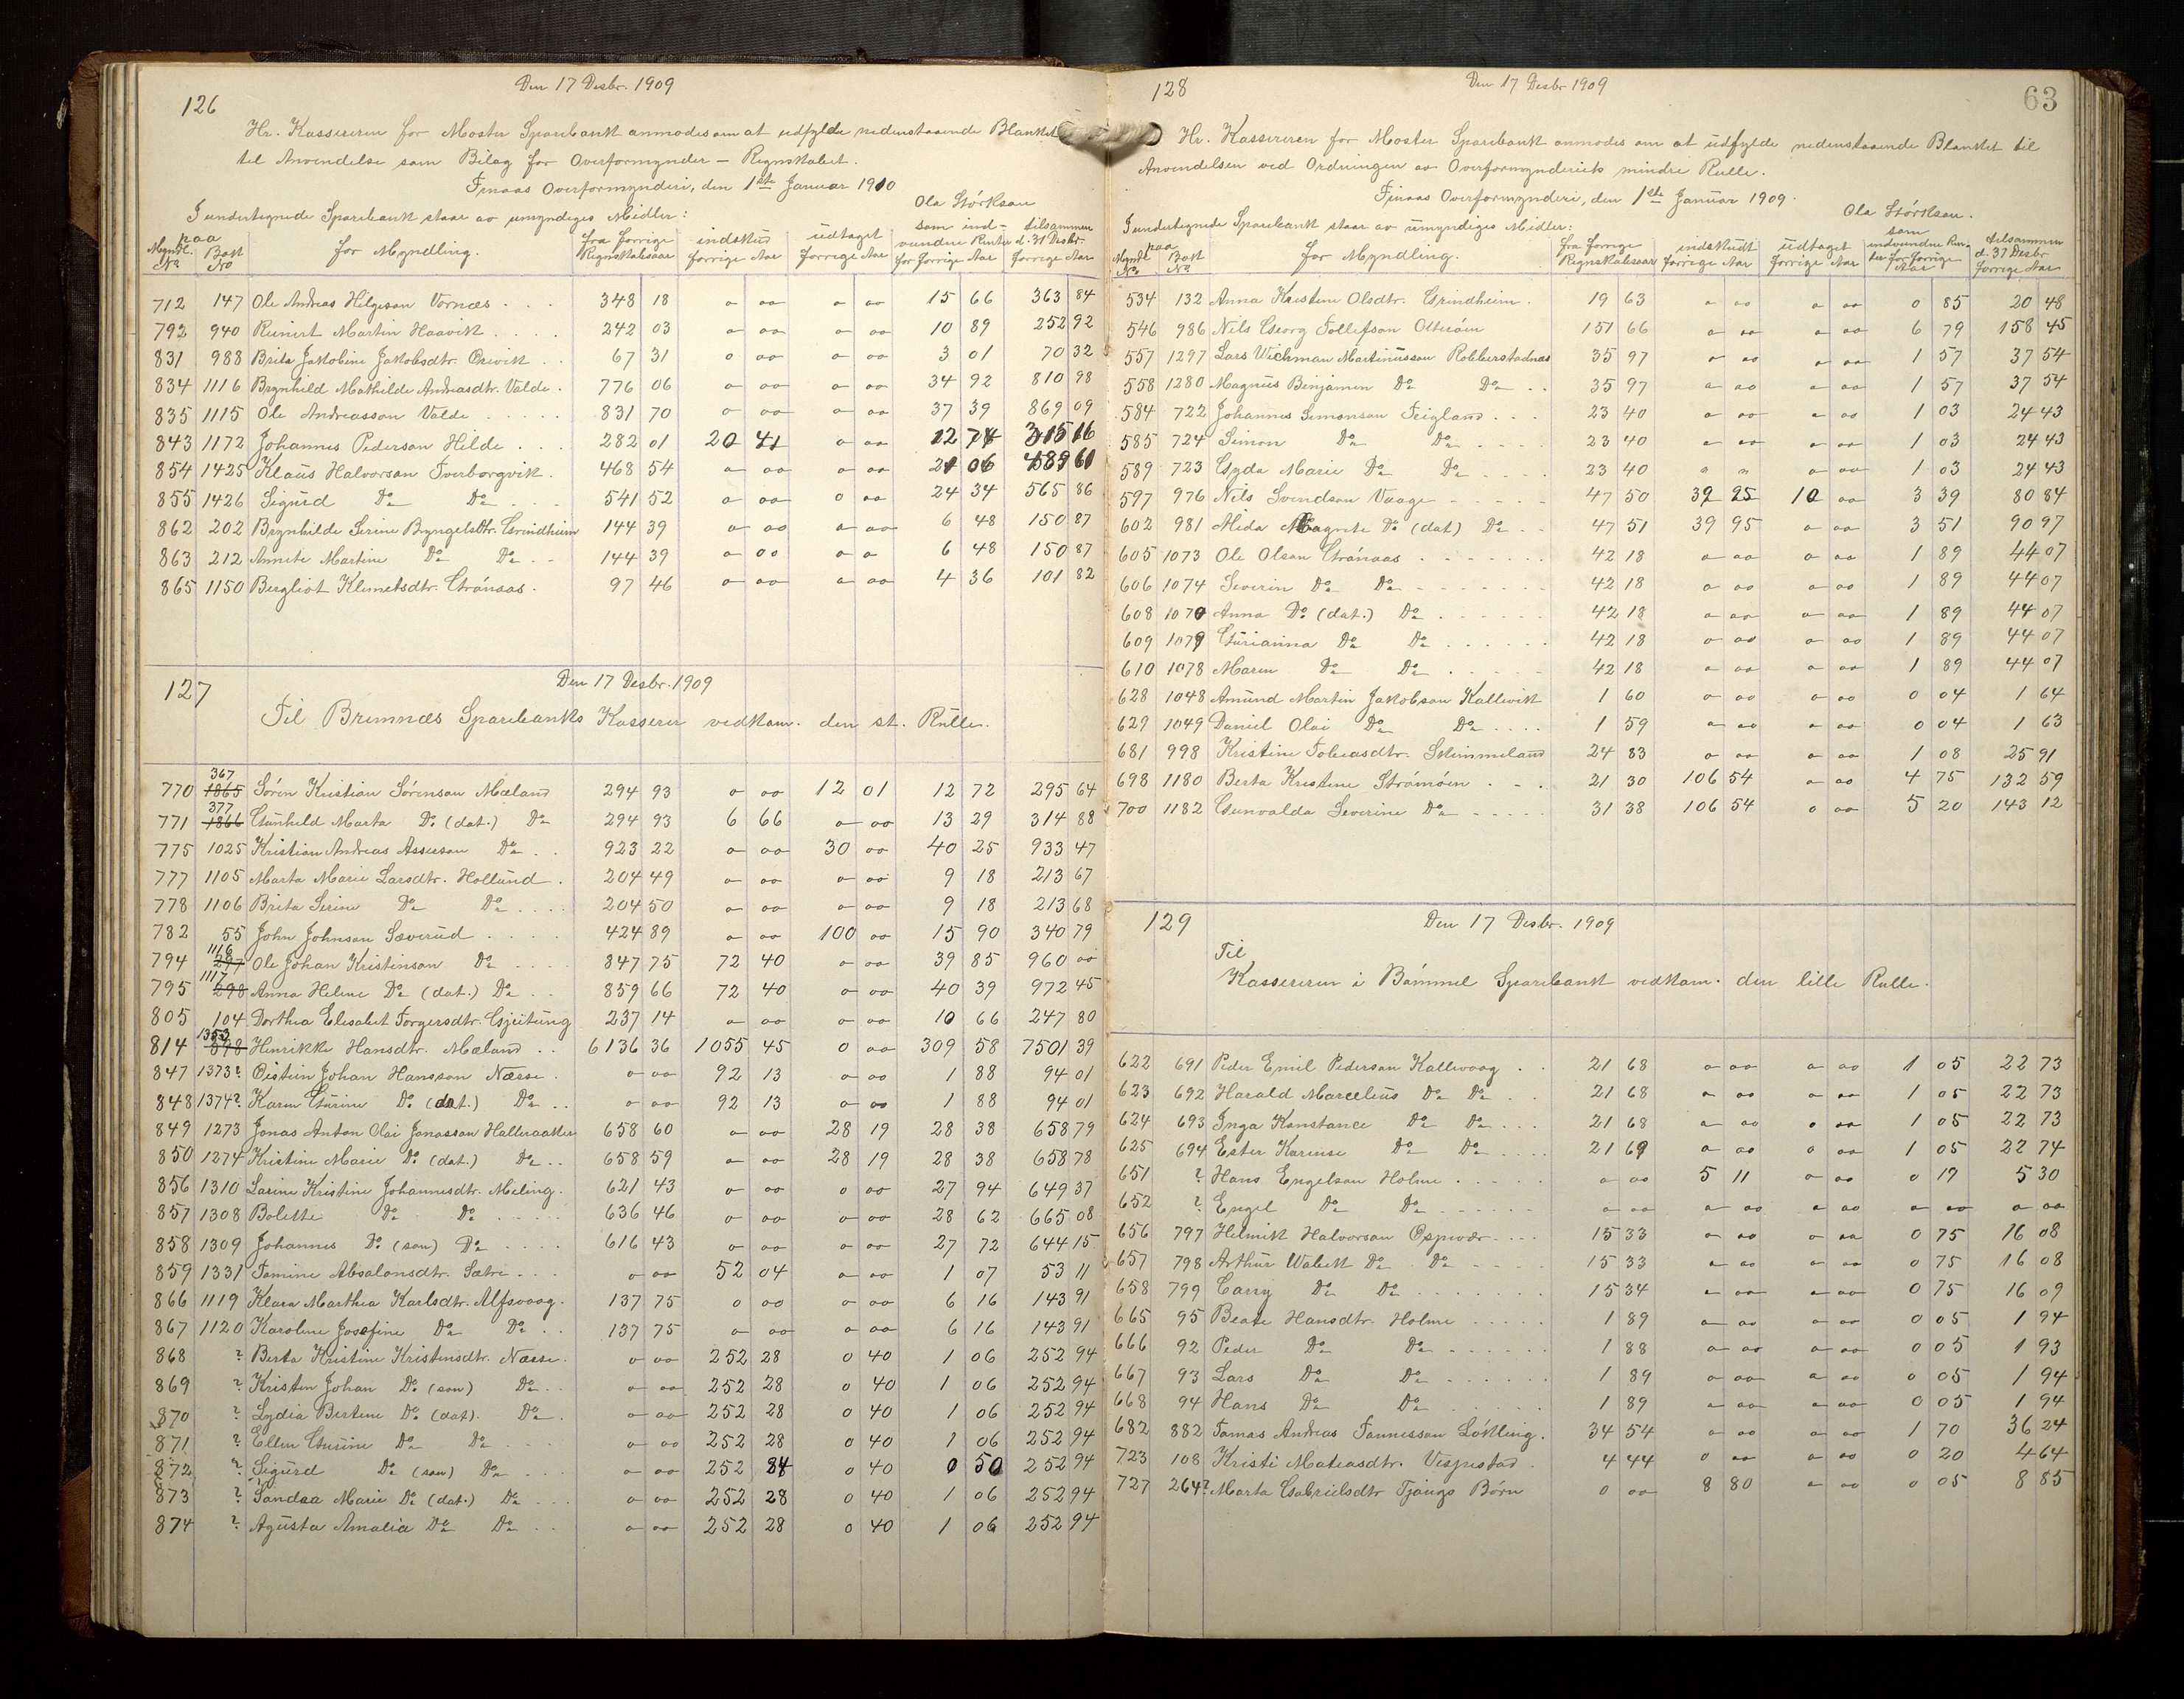 Den 17 Desbr. 1909
126
Hr. Kassereren for Moster Sparebank anmodes om at udfylde nedenstaaende Blanket
til Anvendelse som Bilag for Overformynder - Regnskabet.
Finaas Overformynderi, den 1ste Januar 1910
Ola Størkson
I undertegnede Sparebank staar av umyndiges Midler:
Myndl. No paa Bok No for Myndling. fra forrige Regnskabsaar indskud forrige Aar udtaget forrige Aar som ind- vundne Renter for forrige Aar tilsammen d. 31 Desbr. forrige Aar
712 147 Ole Andreas Helgeson Vornæs . . . 348 18 o oo o oo 15 66 363 84
792 940 Reinert Martin Haavik . . . . 242 03 o oo o oo 10 89 252 92
831 988 Brita Jakobine Jakobsdtr. . . 67 31 o oo o oo 3 01 70 32
834 1116 Brynhild Mathilde Andreasdtr. Valde . 776 06 o oo o oo 34 92 810 98
835 1115 Ole Andreasson Valde . . . . . 831 70 o oo o oo 37 39 869 09
843 1172 Johannes Pederson Hilde . . . 282 01 20 41 o oo 12 74 315 16
854 1425 Klaus Halvorson Tverborgvik . 468 54 o oo o oo 21 06 489 60
855 1426 Sigurd Do Do . . . 541 52 o oo o oo 24 34 565 86
862 202 Brynhilde Serine Bryngelsdtr. Grindheim 144 39 o oo o oo 6 48 150 87
863 212 Annete Martine Do Do . . 144 39 o oo o o 6 48 150 87
865 1150 Bergliot Klemetsdtr. Grønaas . 97 46 o oo o oo 4 36 101 82
127 Den 17 Desbr. 1909
Til Bremnæs Sparebanks Kasserer vedkom. den st. Rulle.
770 367 1865 Søren Kristian Sørenson Mæland 294 93 o oo 12 01 12 72 295 64
771 377 1866 Gunhild Marta Do (dat.) Do 294 93 6 66 o oo 13 29 314 88
775 1025 Kristian Andreas Asserson Do . . 923 22 o oo 30 oo 40 25 933 47
777 1105 Marta Marie Larsdtr. Hollund . 204 49 o oo o oo 9 18 213 67
778 1106 Brita Serine Do Do . . . . 204 50 o oo o oo 9 18 213 68
782 55 John Johnson Sæverud . . . . 424 89 o oo 100 oo 15 90 340 79
794 1116 297 Ole Johan Kristenson Do . . . . 847 75 72 40 o oo 39 85 960 oo
795 1117 298 Anna Helene Do (dat.) Do . . 859 66 72 40 o oo 40 39 972 45
805 104 Dorthea Elisabet Torgersdtr. Gjeitung 237 14 o oo o oo 10 66 247 80
814 1353 898 Henrikke Hansdtr. Mæland . . 6136 36 1055 45 o oo 309 58 7501 39
847 1373? Øistein Johan Hansson Næsse . o oo 92 13 o oo 1 88 94 01
848 1374? Karen Gurine Do (dat.) Do . . o oo 92 13 o oo 1 88 94 01
849 1273 Jonas Anton Olai Jonasson Halleraaker 658 60 o oo 28 19 28 38 658 79
850 1274 Kristine Marie Do (dat.) Do . . 658 59 o oo 28 19 28 38 658 78
856 1310 Larine Kristine Johannesdtr. Meling . 621 43 o oo o oo 27 94 649 37
857 1308 Bolette Do Do . . . . . 636 46 o oo o oo 28 62 665 08
858 1309 Johannes Do (søn) Do . . . . 616 43 o oo o oo 27 72 644 15
859 1331 Tomine Absalonsdtr. Sætre . . . o oo 52 04 o oo 1 07 53 11
866 1119 Klara Marthea Karlsdtr. Alfsvaag . 137 75 o oo o oo 6 16 143 91
867 1120 Karoline Josefine Do Do . . 137 75 o oo o oo 6 16 143 91
868 ? Berta Kristine Kristensdtr. Næsse . o oo 252 28 o 40 1 06 252 94
869 ? Kristen Johan Do (søn) Do . . o oo 252 28 o 40 1 06 252 94
870 ? Lydia Bertine Do (dat). Do . o oo 252 28 o 40 1 06 252 94
871 ? Ellen Gurine Do Do . . . . o oo 252 28 o 40 1 06 252 94
872 ? Sigurd Do (søn) Do . . . o oo 252 84 o 40 0 50 252 94
873 ? Sandaa Marie Do (dat.) Do . . . o oo 252 28 o 40 1 06 252 94
874 ? Agusta Amalia Do Do . . o oo 252 28 o 40 1 06 252 94
128 Den 17 Desbr 1909 63
Hr. Kassereren for Moster Sparebank anmodes om at udfylde nedenstaaende Blanket til
Anvendelsen ved Ordningen av Overformynderiets mindre Rulle.
Finaas Overformynderi, den 1ste Januar 1909.
Ola Størkson.
I undertegnede Sparebank staar av umyndiges Midler:
Myndl No paa Bok No for Myndling. fra forrige Regnskabsaar indskudt forrige Aar udtaget forrige Aar som indvundne Ren- ter for forrige Aar tilsammen d. 31 Desbr forrige Aar
534 132 Anna Kristine Olsdtr. Grindheim . 19 63 o oo o oo 0 85 20 48
546 986 Nils Georg Tollefson Otterøen 151 66 o oo o oo 6 79 158 45
557 1297 Lars Wichman Martinusson Robberstadnes 35 97 o oo o oo 1 57 37 54
558 1280 Magnus Benjamen Do Do . . 35 97 o oo o oo 1 57 37 54
584 722 Johannes Simonson Feigland . . . 23 40 o oo o oo 1 03 24 43
585 724 Simon Do Do . . . . 23 40 o oo o oo 1 03 24 43
589 723 Gyda Marie Do Do . . . . 23 40 " " o oo 1 03 24 43
597 976 Nils Svendson Vaage . . . . . 47 50 39 95 10 oo 3 39 80 84
602 981 Alida Magrete Do (dat) Do . . 47 51 39 95 o oo 3 51 90 97
605 1073 Ole Olson Grønaas . . . . . . . 42 18 o oo o oo 1 89 44 07
606 1074 Severin Do Do . . . . . . . 42 18 o oo o oo 1 89 44 07
608 1070 Anna Do (dat.) Do . . . . . . 42 18 o oo o oo 1 89 44 07
609 1079 Gurianna Do Do . . . . . . 42 18 o oo o oo 1 89 44 07
610 1078 Maren Do Do . . . . . 42 18 o oo o oo 1 89 44 07
628 1048 Amund Martin Jakobson Kallevik 1 60 o oo o oo 0 04 1 64
629 1049 Daniel Olai Do Do . . . . 1 59 o oo o oo 0 04 1 63
681 998 Kristine Tobiasdtr. Skimmeland 24 83 o oo o oo 1 08 25 91
698 1180 Berta Kristine Strømøen . . . 21 30 106 54 o oo 4 75 132 59
700 1182 Gunvalda Severine Do . . . . . 31 38 106 54 o oo 5 20 143 12
129 Den 17 Desbr. 1909
Til
Kassereren i Bømmel Sparebank vedkom. den lille Rulle.
622 691 Peder Emil Pederson Kallevaag . . 21 68 o oo o oo 1 05 22 73
623 692 Harald Marcelius Do Do . . 21 68 o oo o oo 1 05 22 73
624 693 Inga Konstance Do Do . . . 21 68 o oo o oo 1 05 22 73
625 694 Ester Karense Do Do . . . . 21 69 o oo o oo 1 05 22 74
651 ? Hans Engelson Holme . . . . . o oo 5 11 o oo 0 19 5 30
652 ? Engel Do Do . . . . . . o oo o oo o oo o oo o oo
656 797 Helmik Halvorson Espevær . . . . 15 33 o oo o oo 0 75 16 08
657 798 Arthur Do Do . . . . . 15 33 o oo o oo 0 75 16 08
658 799 Carry Do Do . . . . . . . 15 34 o oo o oo 0 75 16 09
665 95 Beate Hansdtr. Holme . . . . . 1 89 o oo o oo 0 05 1 94
666 92 Peder Do Do . . . . . . 1 88 o oo o oo 0 05 1 93
667 93 Lars Do Do . . . . . . 1 89 o oo o oo 0 05 1 94
668 94 Hans Do Do . . . . . 1 89 o oo o oo 0 05 1 94
682 882 Tomas Andreas Tønnesson Løkling . 34 54 o oo o oo 1 70 36 24
723 108 Kristi Mateasdtr. Vespestad . 4 44 o oo o oo 0 20 4 64
727 264? Marta Gabrielsdtr Tjongs Børn 0 oo 8 80 o oo 0 05 8 85